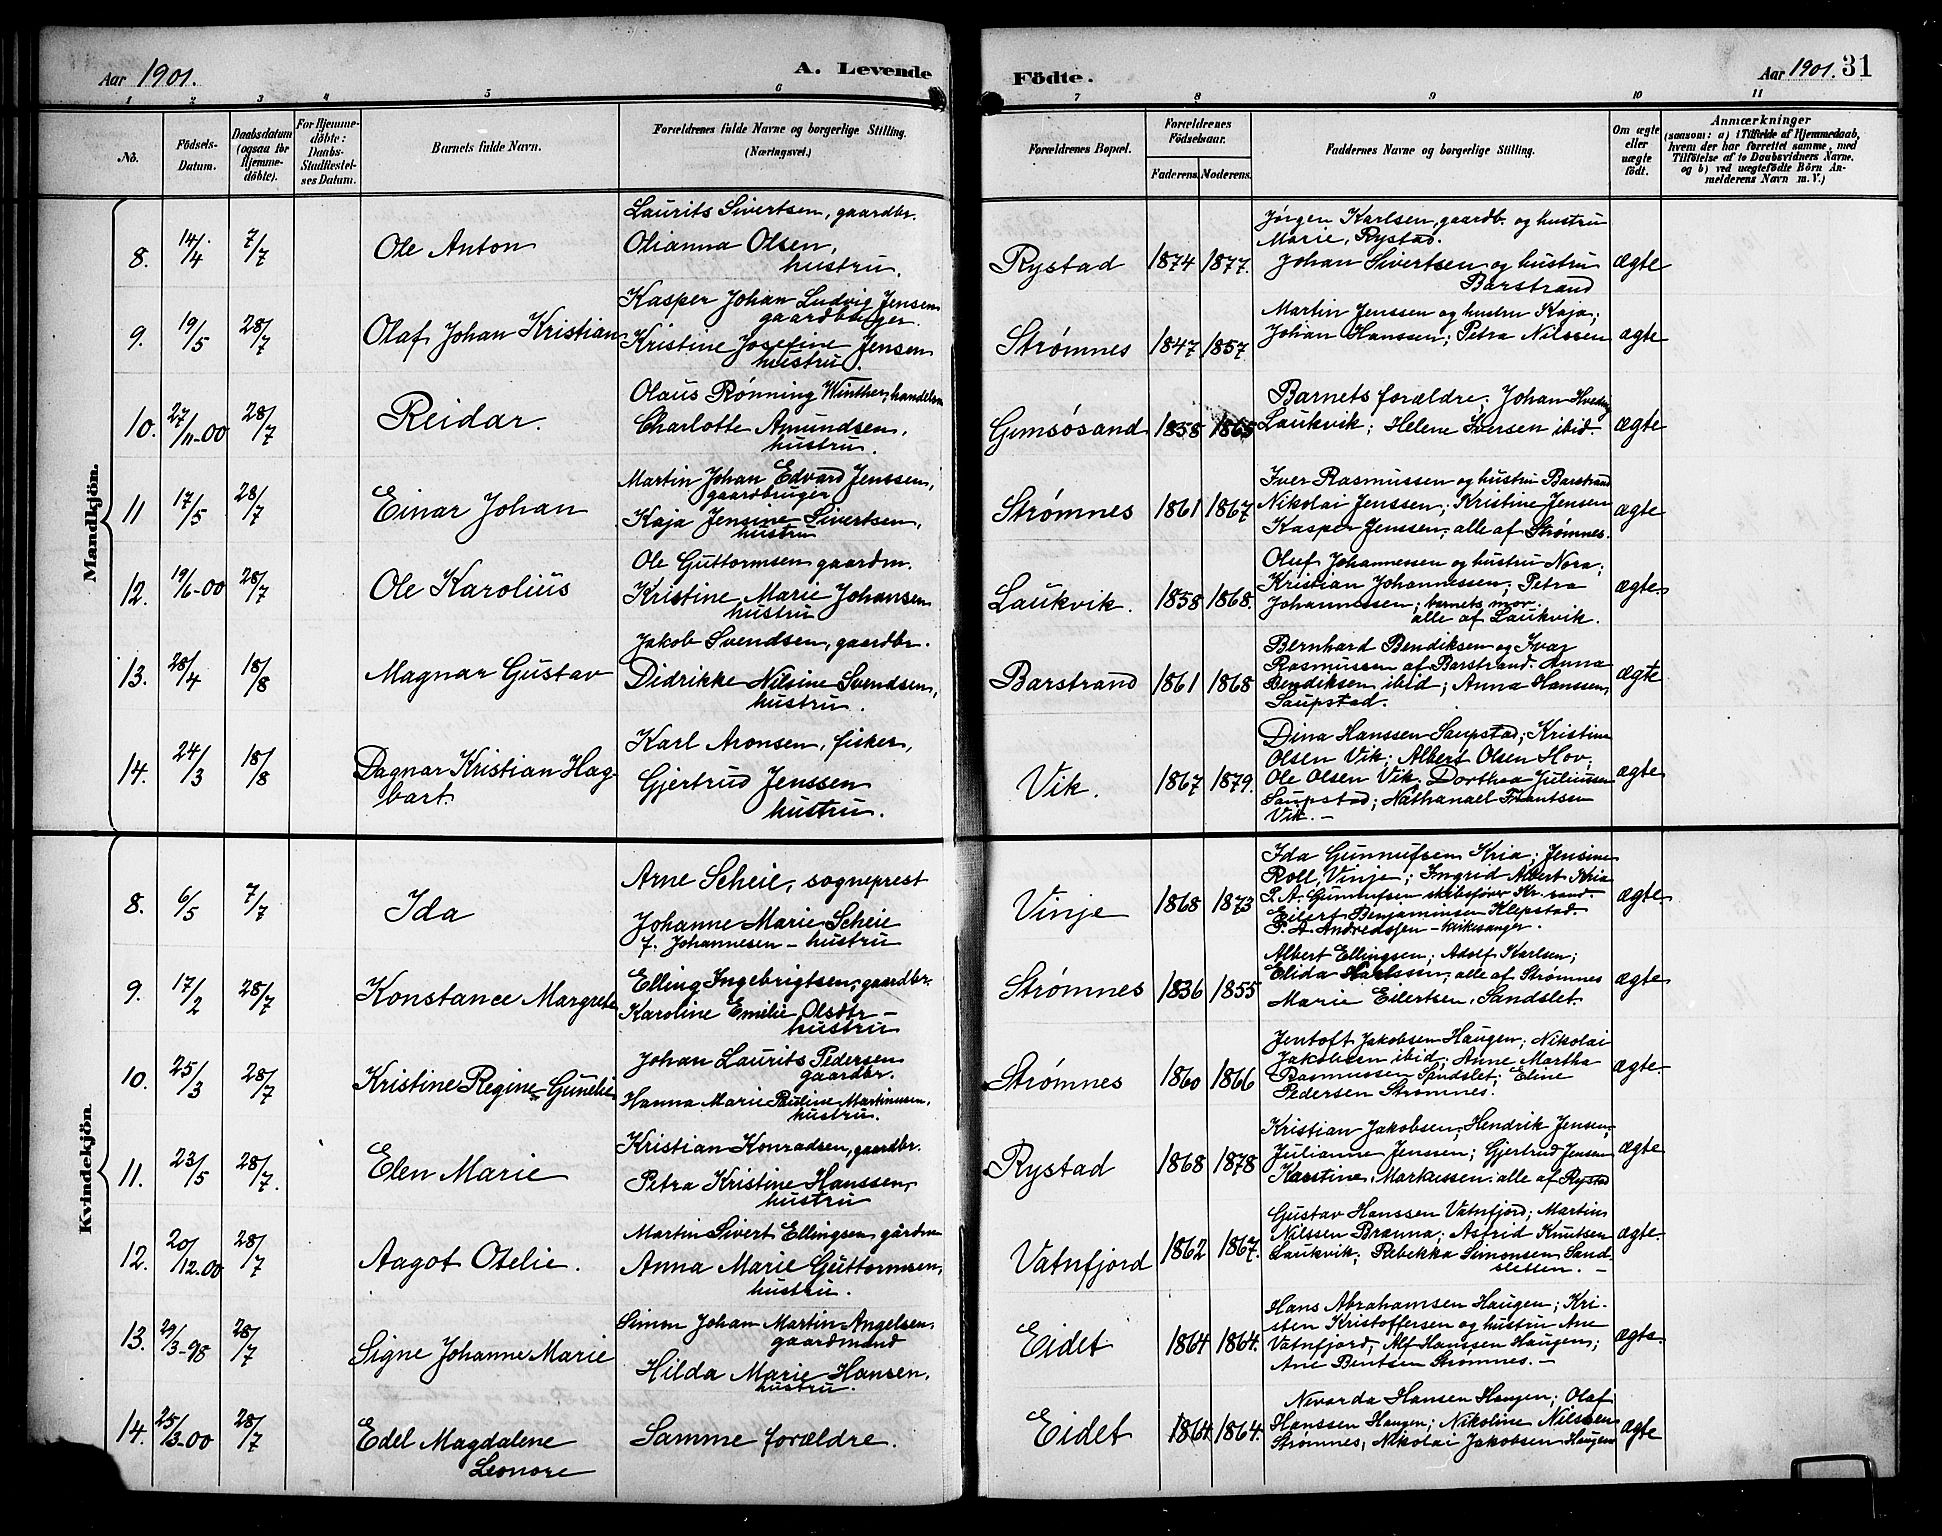 Aar 1901.
A. Levende
Födte.
Aar 1901. 31
1 2 3 4 5 6 7 8 9 10 11
No.
Födsels-
Datum.
Daabsdatum
(ogsaa for
Hjemme-
döbte).
For Hjemme-
döbte:
Daabs-
Stadfæstel-
ses Datum.
Barnets fulde Navn.
Forældrenes fulde Navne og borgerlige Stilling.
(Næringsvei.)
Forældrenes Bopæl.
Forældrenes
Födselsaar.
Faderens. Moderens.
Faddernes Navne og borgerlige Stilling.
Om ægte
eller
uægte
født.
Anmærkninger
(saasom: a) i Tilfælde af Hjemmedaab,
hvem der har forrettet samme, med
Tilföielse af to Daabsvidners Navne,
og b) ved uægtefödte Börn An-
melderens Navn m. V.)
Mandkjön.
8. 14/4 7/7 Ole Anton
Laurits Sivertsen, gaardbr.
Olianna Olsen,
hustru.
Rystad 1874 1877.
Jørgen Karlsen, gaardb. og hustru
Marie, Rystad.
Johan Sivertsen og hustru
Barstrand
ægte
9. 19/5 28/7 Olaf Johan Kristian
Kasper Johan Ludvig Jensen
gaardbruger.
Kristine Josefine Jensen
hustru.
Strømnes 1847 1857.
Martin Jenssen og hustru Kaja;
Johan Hanssen; Petra Nilssen
ægte
10. 27/11-00 28/7 Reidar.
Olaus Rönning Winther, handelsm
Charlotte Amundsen,
hustru.
Gimsösand 1858 1865
Barnets forældre; Johan
Laukvik; Helene Iversen ibid.
ægte
11 17/5 28/7 Einar Johan
Martin Johan Edvard Jenssen,
gaardbruger
Kaja Jensine Sivertsen,
hustru
Strømnes 1861 1867
Iver Rasmussen og hustru Barstrand
Nikolai Jenssen; Kristine Jensen
Kasper Jenssen, alle af Strømnes.
ægte
12. 19/6-00 28/7 Ole Karolius
Ole Guttormsen gaardm.
Kristine Marie Johansen
hustru
Laukvik. 1858 1868.
Oluf Johannessen og hustru Nora;
Kristian Johannessen; Petra
Johannessen; barnets mor.
alle af Laukvik.
ægte
13. 28/4 18/8 Magnar Gustav
Jakob Svendsen, gaardbr.
Didrikke Nilsine Svendsen,
hustru.
Barstrand 1861 1868
Bernhard Bendiksen og Ivar
Rasmussen af Barstrand. Anna
Bendiksen ibid; Anna Hanssen,
Saupstad.
ægte
14. 24/3 18/8 Dagnar Kristian Hag-
bart.
Karl Aronsen, fisker,
Gjertrud Jenssen
hustru.
Vik. 1867 1879.
Dina Hanssen Saupstad; Kristine
Olsen Vik; Albert Olsen Hov;
Ole Olsen Vik. Dorthea Juliussen
Saupstad; Nathanael Frantsen
Vik. —
ægte
Kvindekjön.
8. 6/5 7/7 Ida
Arne Scheie, sogneprest
Johanne Marie Scheie
f. Johannesen — hustru
Vinje 1868 1873
Ida Gunnufsen Kria; Jensine
Roll, Vinje; Ingrid Albert Kria
P. A. Gunnufsen skibsfører Kr. sand.
Eilert Benjaminsen Klepstad.
P. A. Andreassen — kirkesanger.
ægte
9. 17/2 28/7 Konstance Margrete
Elling Ingebrigtsen, gaardbr.
Karoline Emilie Olsdtr —
hustru
Strømnes 1836 1855
Albert Ellingsen; Adolf Karlsen;
Elida Karlssen, alle af Strømnes
Marie Eilertsen, Sandslet
ægte
10. 25/3 28/7 Kristine Regine Gunelie
Johan Laurits Pedersen
gaardbr.
Hanna Marie Pauline Martinusen,
hustru.
Strømnes 1860 1866
Jentoft Jakobsen Haugen; Nikolai
Jakobsen ibid; Anne Martha
Rasmussen Sandslet; Eline
Pedersen Strømnes.
ægte.
11. 23/5 28/7. Elen Marie
Kristian Konradsen, gaardbr.
Petra Kristine Hanssen,
hustru
Rystad 1868 1878
Kristian Jakobsen; Hendrik Jensen;
Julianne Jenssen; Gjertrud Jensen
Karstine Markussen. alle af Rystad
ægte
12. 20/12-00 28/7 Aagot Otelie.
Martin Sivert Ellingsen gårdm
Anna Marie Guttormsen,
hustru.
Vatnfjord 1862 1867.
Gustav Hanssen Vatnfjord; Martin
Nilssen Brenna; Astrid Knutsen
Laukvik; Rebekka Simonsen Sand-
sletten. —
ægte.
13. 29/3-98 28/7 Signe Johanne Marie
Simon Johan Martin Angelsen,
gaardmand
Hilda Marie Hansen,
hustru.
Eidet 1864 1864.
Hans Abrahamsen Haugen; Kri-
sten Kristoffersen og hustru Ane
Vatnfjord; Alf Hanssen Haugen;
Ane Bentsen Strømnes. —
ægte.
14. 25/3-00 28/7 Edel Magdalene
Leonore
Samme forældre.
Eidet 1864 1864.
Nevarda Hansen Haugen; Olaf
Hanssen Haugen; Nikoline Nilssen
Strømnes, Nikolai Jakobsen Haugen
ægte